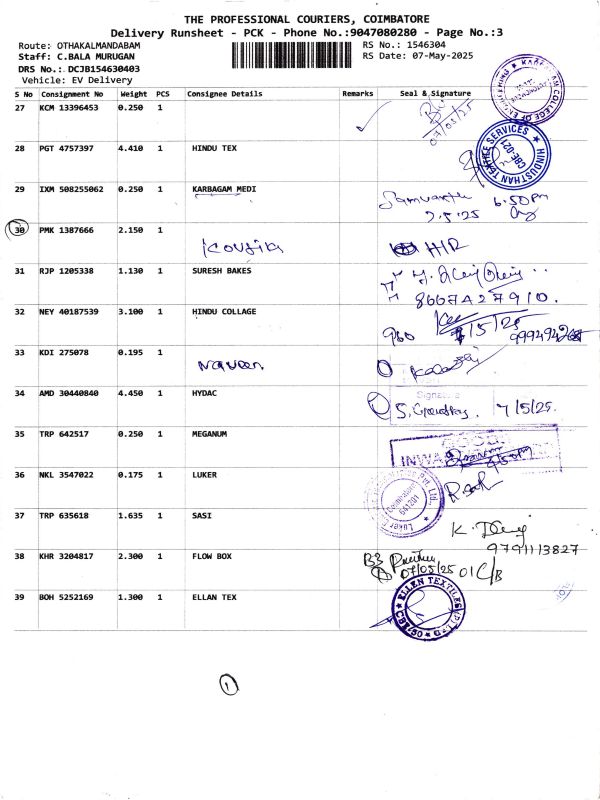 THE PROFESSIONAL COURIERS, COIMBATORE
Delivery Runsheet - PCK - Phone No.:9047080280 - Page No.:3
Route: OTHAKALMANDABAM RS No.: 1546304
Staff: C.BALA MURUGAN RS Date: 07-May-2025
DRS No.: DCJB154630403
Vehicle: EV Delivery
S No Consignment No Weight PCS Consignee Details Remarks Seal & Signature
27 KCM 13396453 0.250 1
07/05/25
28 PGT 4757397 4.410 1 HINDU TEX
HINDUSTHAN SERVICES CBE-021
29 IXM 508255062 0.250 1 KARBAGAM MEDI
6.50pm
7.5.25
30 PMK 1387666 2.150 1
Kousik H/R
31 RJP 1205338 1.130 1 SURESH BAKES
8607A27910.
32 NEY 40187539 3.100 1 HINDU COLLAGE
/5/25
960
33 KDI 275078 0.195 1
Naveen
34 AMD 30440840 4.450 1 HYDAC
Signature
7/5/25.
35 TRP 642517 0.250 1 MEGANUM
INWA
36 NKL 3547022 0.175 1 LUKER
Luker Pvt. Ltd. Coimbatore 641201
37 TRP 635618 1.635 1 SASI
9791113827
38 KHR 3204817 2.300 1 FLOW BOX
07/05/25 01 C/B
39 BOH 5252169 1.300 1 ELLAN TEX
ELLEN TEXTILES (P) LTD
1